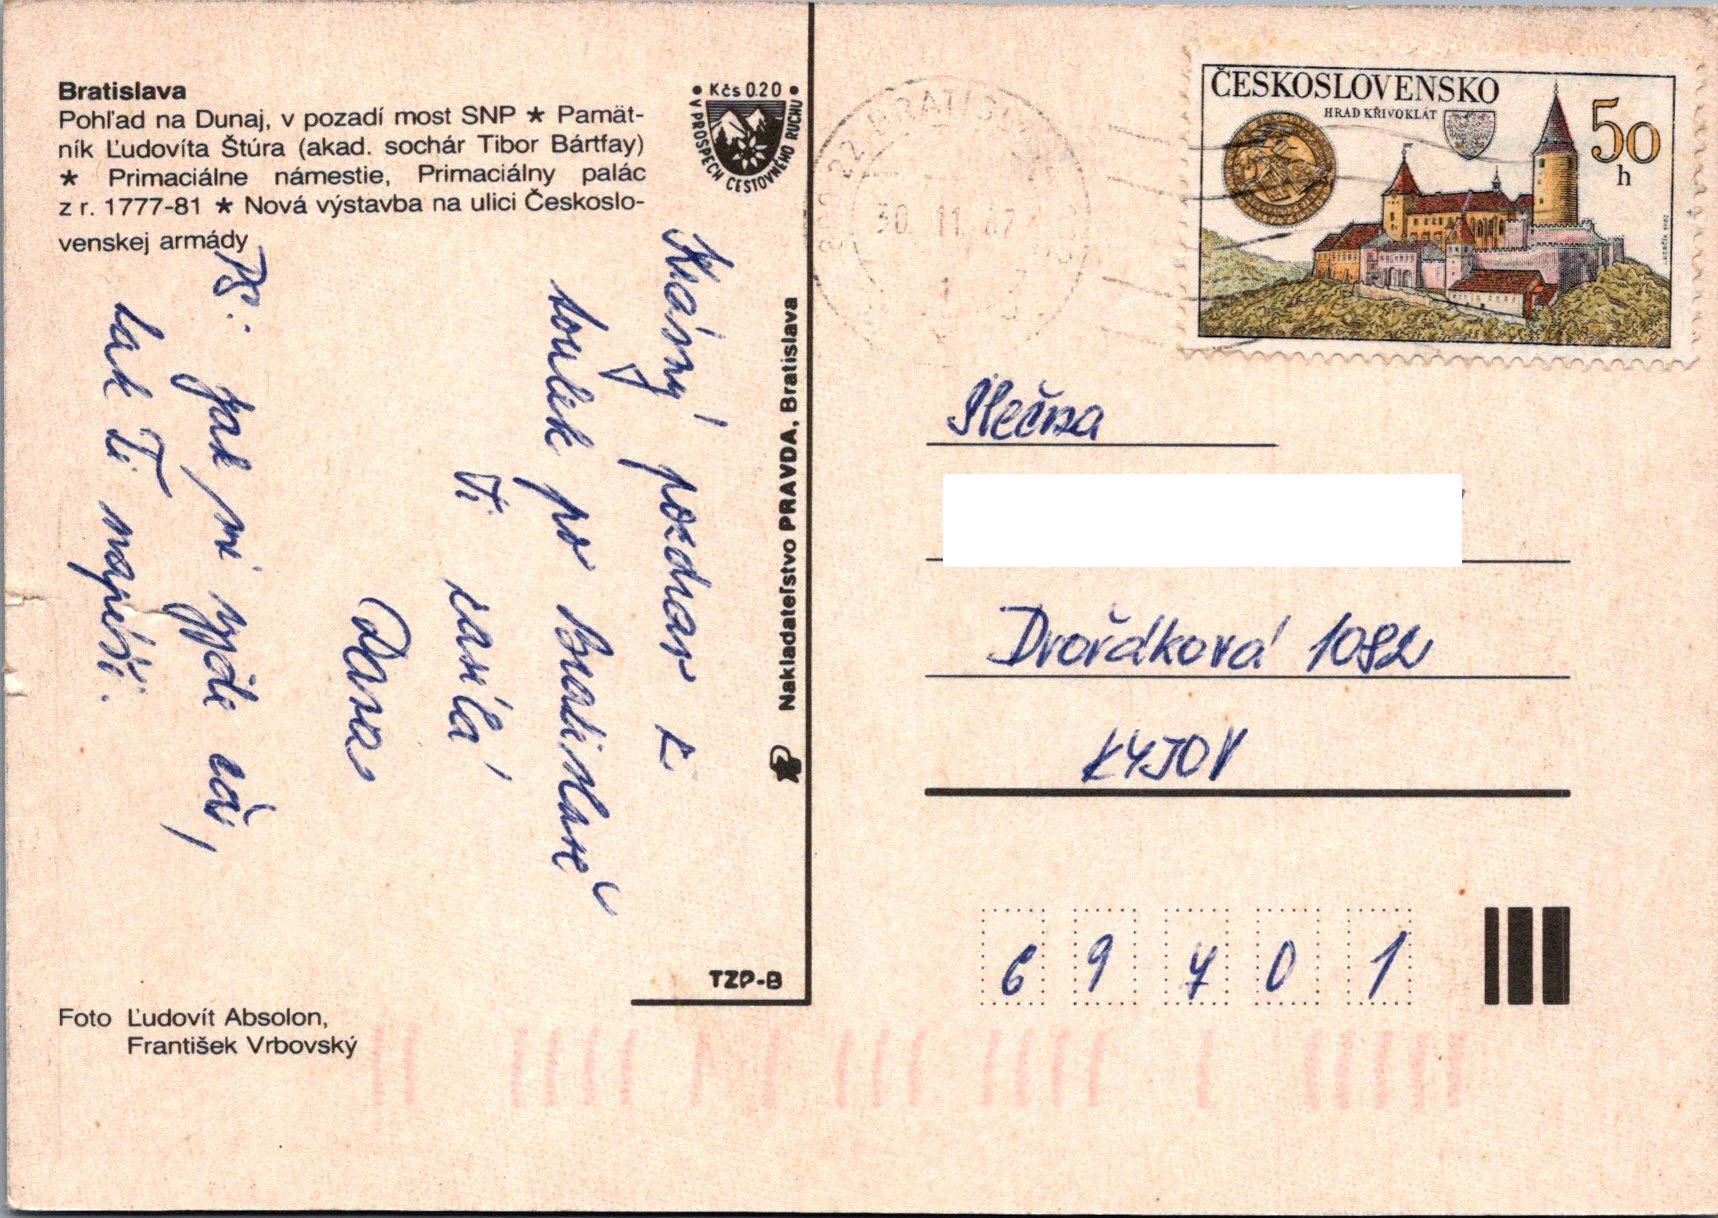 Bratislava
Pohľad na Dunaj, v pozadí most SNP ★ Pamät-
ník Ľudovíta Štúra (akad. sochár Tibor Bártfay)
★ Primaciálne námestie, Primaciálny palác
z r. 1777-81 ★ Nová výstavba na ulici Českoslo-
venskej armády
• Kčs 0.20 •
V PROSPECH CESTOVNÉHO RUCHU
Krásný pozdrav z
toulek po Bratislavě
Ti zasílá
Dana
PS: jak mi vyjde čas,
tak Ti napíši.
Nakladateľstvo PRAVDA, Bratislava
TZP-B
Foto Ľudovít Absolon,
František Vrbovský
BRATISLAVA
30. 11. 87
ČESKOSLOVENSKO
HRAD KŘIVOKLÁT
50
h
Slečna
Dvořáková 1082
KYJOV
69701